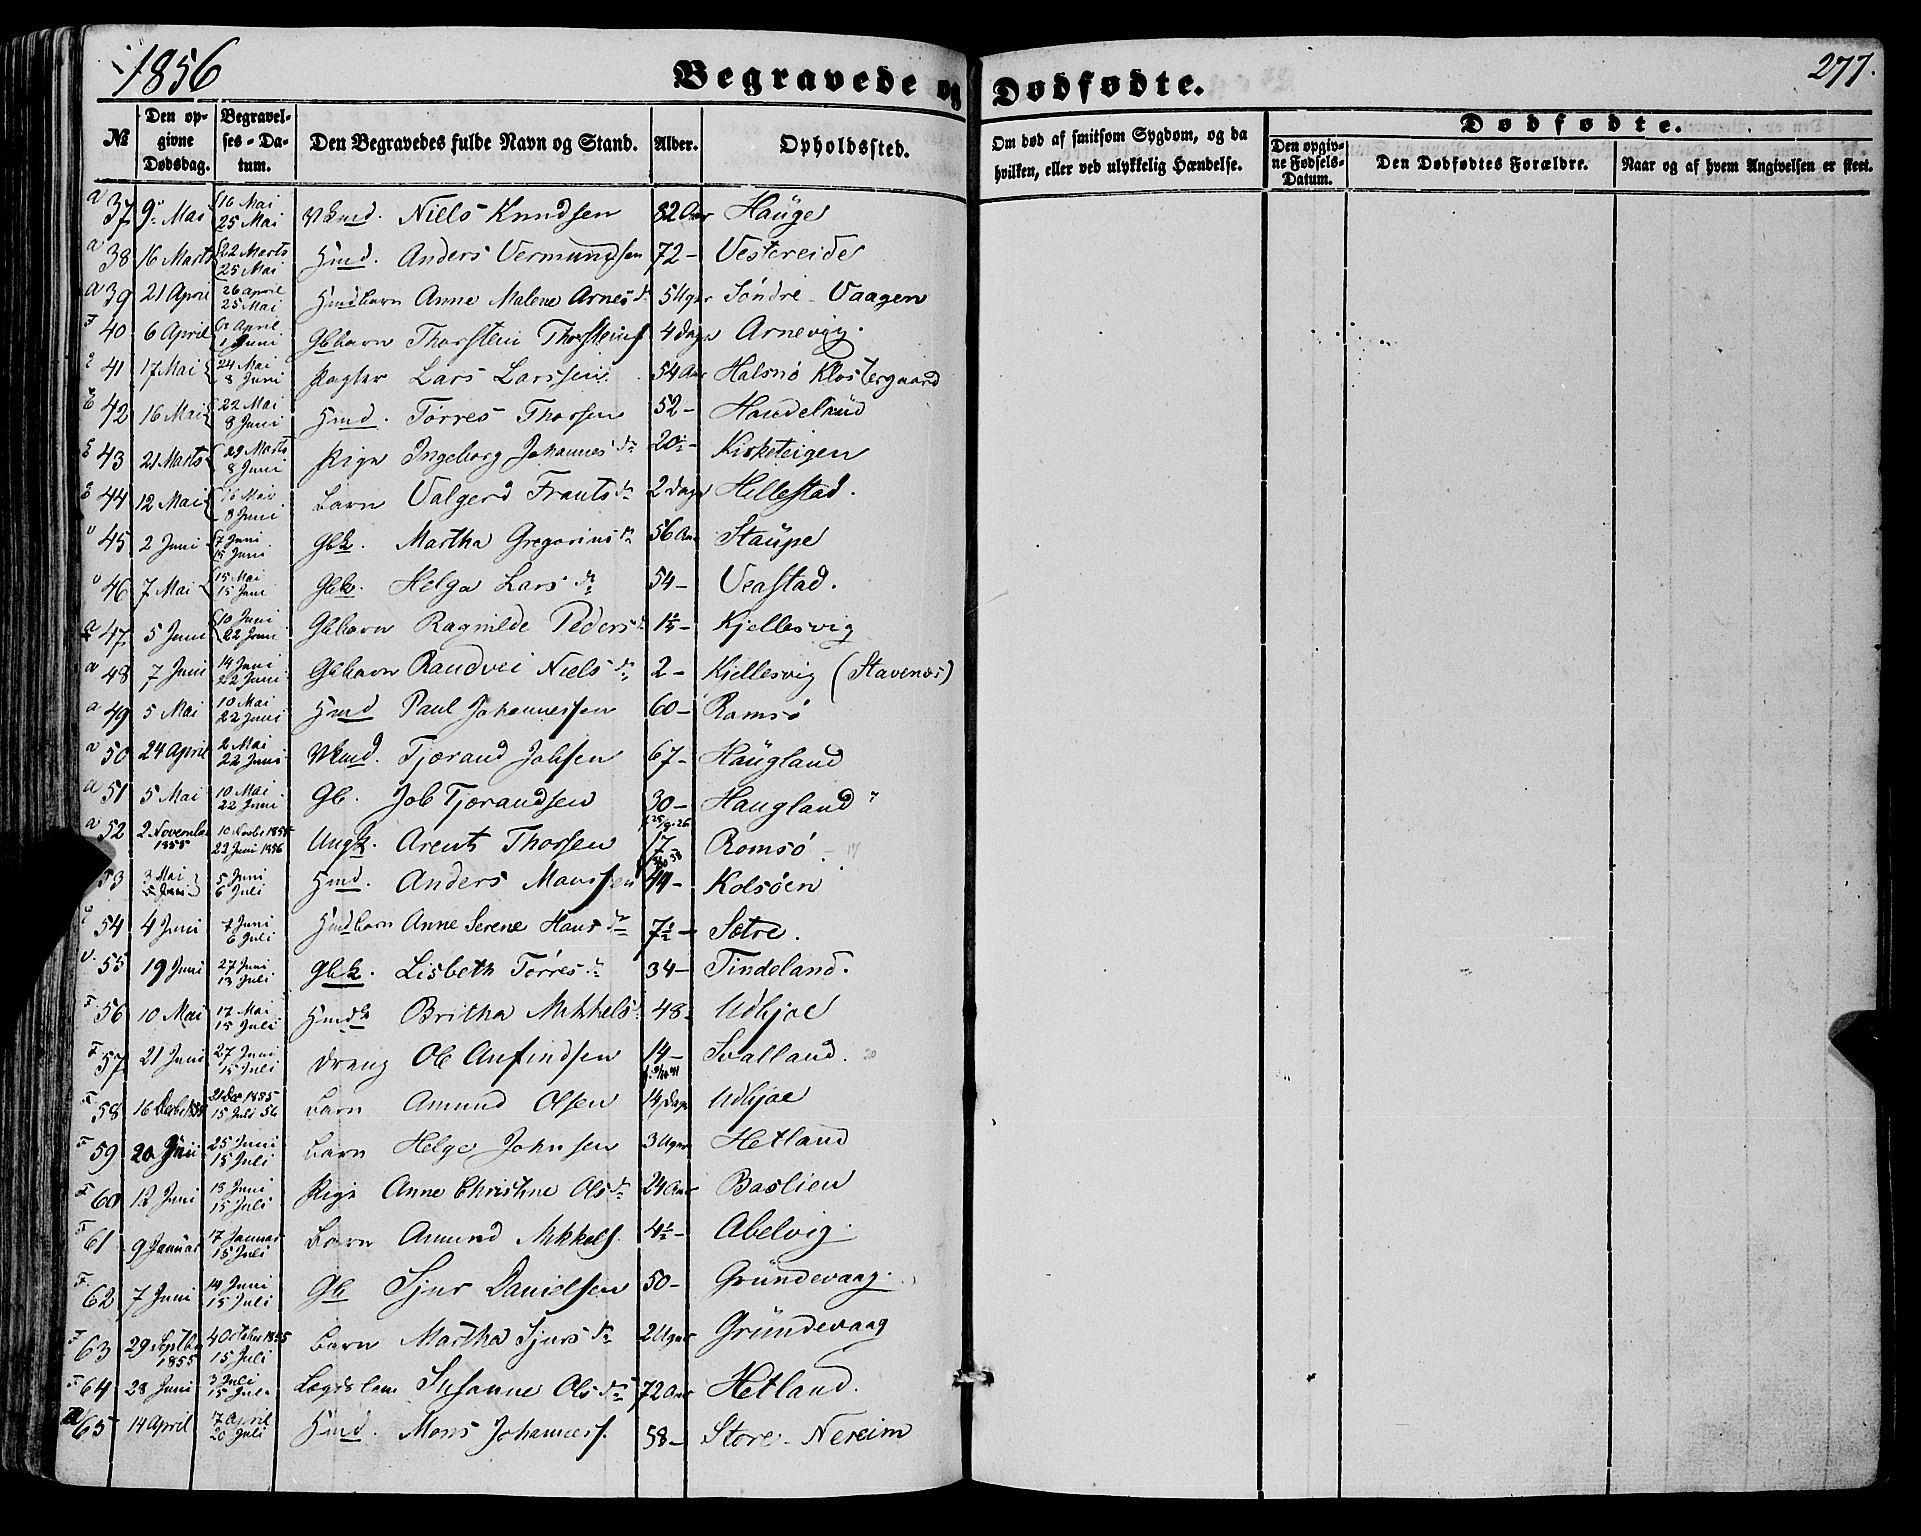 1856
Begravede og Dødfødte.
277.
№ Den opgivne Dødsdag. Begravelses-Datum. Den Begravedes fulde Navn og Stand. Alder. Opholdssted. Om død af smitsom Sygdom, og da hvilken, eller ved ulykkelig Hændelse. Dødfødte. Den opgivne Fødsels-Datum. Den Dødfødtes Forældre. Naar og af hvem Angivelsen er skeet.
a 37 9 Mai 16 Mai 25 Mai Niels Knudsen 82 Aar Hauge
a 38 16 Marts 22 Marts 25 Mai Hmd. Anders Vermundsen 72 - Vestereide
a 39 21 April 26 April 25 Mai Hmdbarn Anne Malene Arnesdr 5 Uger Søndre Vaagen
F 40 6 April April 1 Juni Gbbarn Thorstein Thorsteins 4 dage Arnevig.
41 17 Mai 24 Mai 8 Juni Lars Larssen 54 Aar Halsnø Klostergaard
42 16 Mai 22 Mai 8 Juni Hmd. Tørres Thorsen 52 - Handeland
43 21 Marts 29 Marts 8 Juni Pige Ingeborg Johannesdr 20½ - Kirketeigen
44 12 Mai 16 Mai 8 Juni barn Valgerd Frantsdr 2 dage Hillestad.
45 2 Juni 7 Juni 15 Juni Gbk. Martha Gregoriusdr 56 Aar Staupe
46 7 Mai 15 Mai 15 Juni Gbk. Helga Larsdr 54 - Veastad.
a 47 5 Juni 10 Juni 22 Juni Gbbarn Ragnilde Pedersdr Kjellesvig
a 48 7 Juni 14 Juni 22 Juni Gbbarn Randvei Nielsdr 2 - Kjellesvig (Stavenæs)
a 49 5 Mai 10 Mai 22 Juni Hmd Paul Johannessen 60 - Romsø
a 50 24 April 2 Mai 22 Juni Tjærand Jobsen 67 - Haugland
a 51 5 Mai 10 Mai 22 Juni Gb. Job Tjærandsen 30 - Haugland
a 52 2 November 1855 10 Novbr 1855 22 Juni 1856 Ungk. Arent Thorsen 17 - Romsø
53 3 Mai 5 Juni 5 Juni 6 Juli Hmd. Anders Monssen 44 - Kolsøen
54 4 Juni 7 Juni 6 Juli Hmdbarn Anne Serene Hansdr 7½ - Sætre.
55 19 Juni 27 Juni 13 Juli Gbk. Lisbeth Tørresdr 34 - Tindeland.
F 56 10 Mai 17 Mai 15 Juli Hmdk Britha Mikkelsd 48 - Udbjoe
F 57 21 Juni 27 Juni 15 Juli dreng Ole Anfindsen 14 - Svalland.
F 58 16 Decbr 1855 21 Dec 1855 15 Juli 56 barn Amund Olsen 14 dage Udbjoe
F 59 20 Juni 25 Juni 15 Juli barn Helge Johnsen 3 Uger Hetland
F 60 12 Juni 18 Juni 15 Juli Pige Anne Christine Olsdr 24 Aar Baslien
F 61 9 Januar 17 Januar 15 Juli barn Amund Mikkels. 4½ - Abelvig.
F 62 7 Juni 14 Juni 15 Juli Gb Sjur Danielsen 50 - Grundevaag.
F 63 29 Septbr 1855 4 October 1855 15 Juli barn Martha Sjursdr 2 Uger Grundevaag
F 64 28 Juni 3 Juli 15 Juli Lægdslem Susanne Olsdr 72 Aar Hetland.
65 14 April 17 April 20 Juli Hmd. Mons Johanness. 58 - Store Nereim